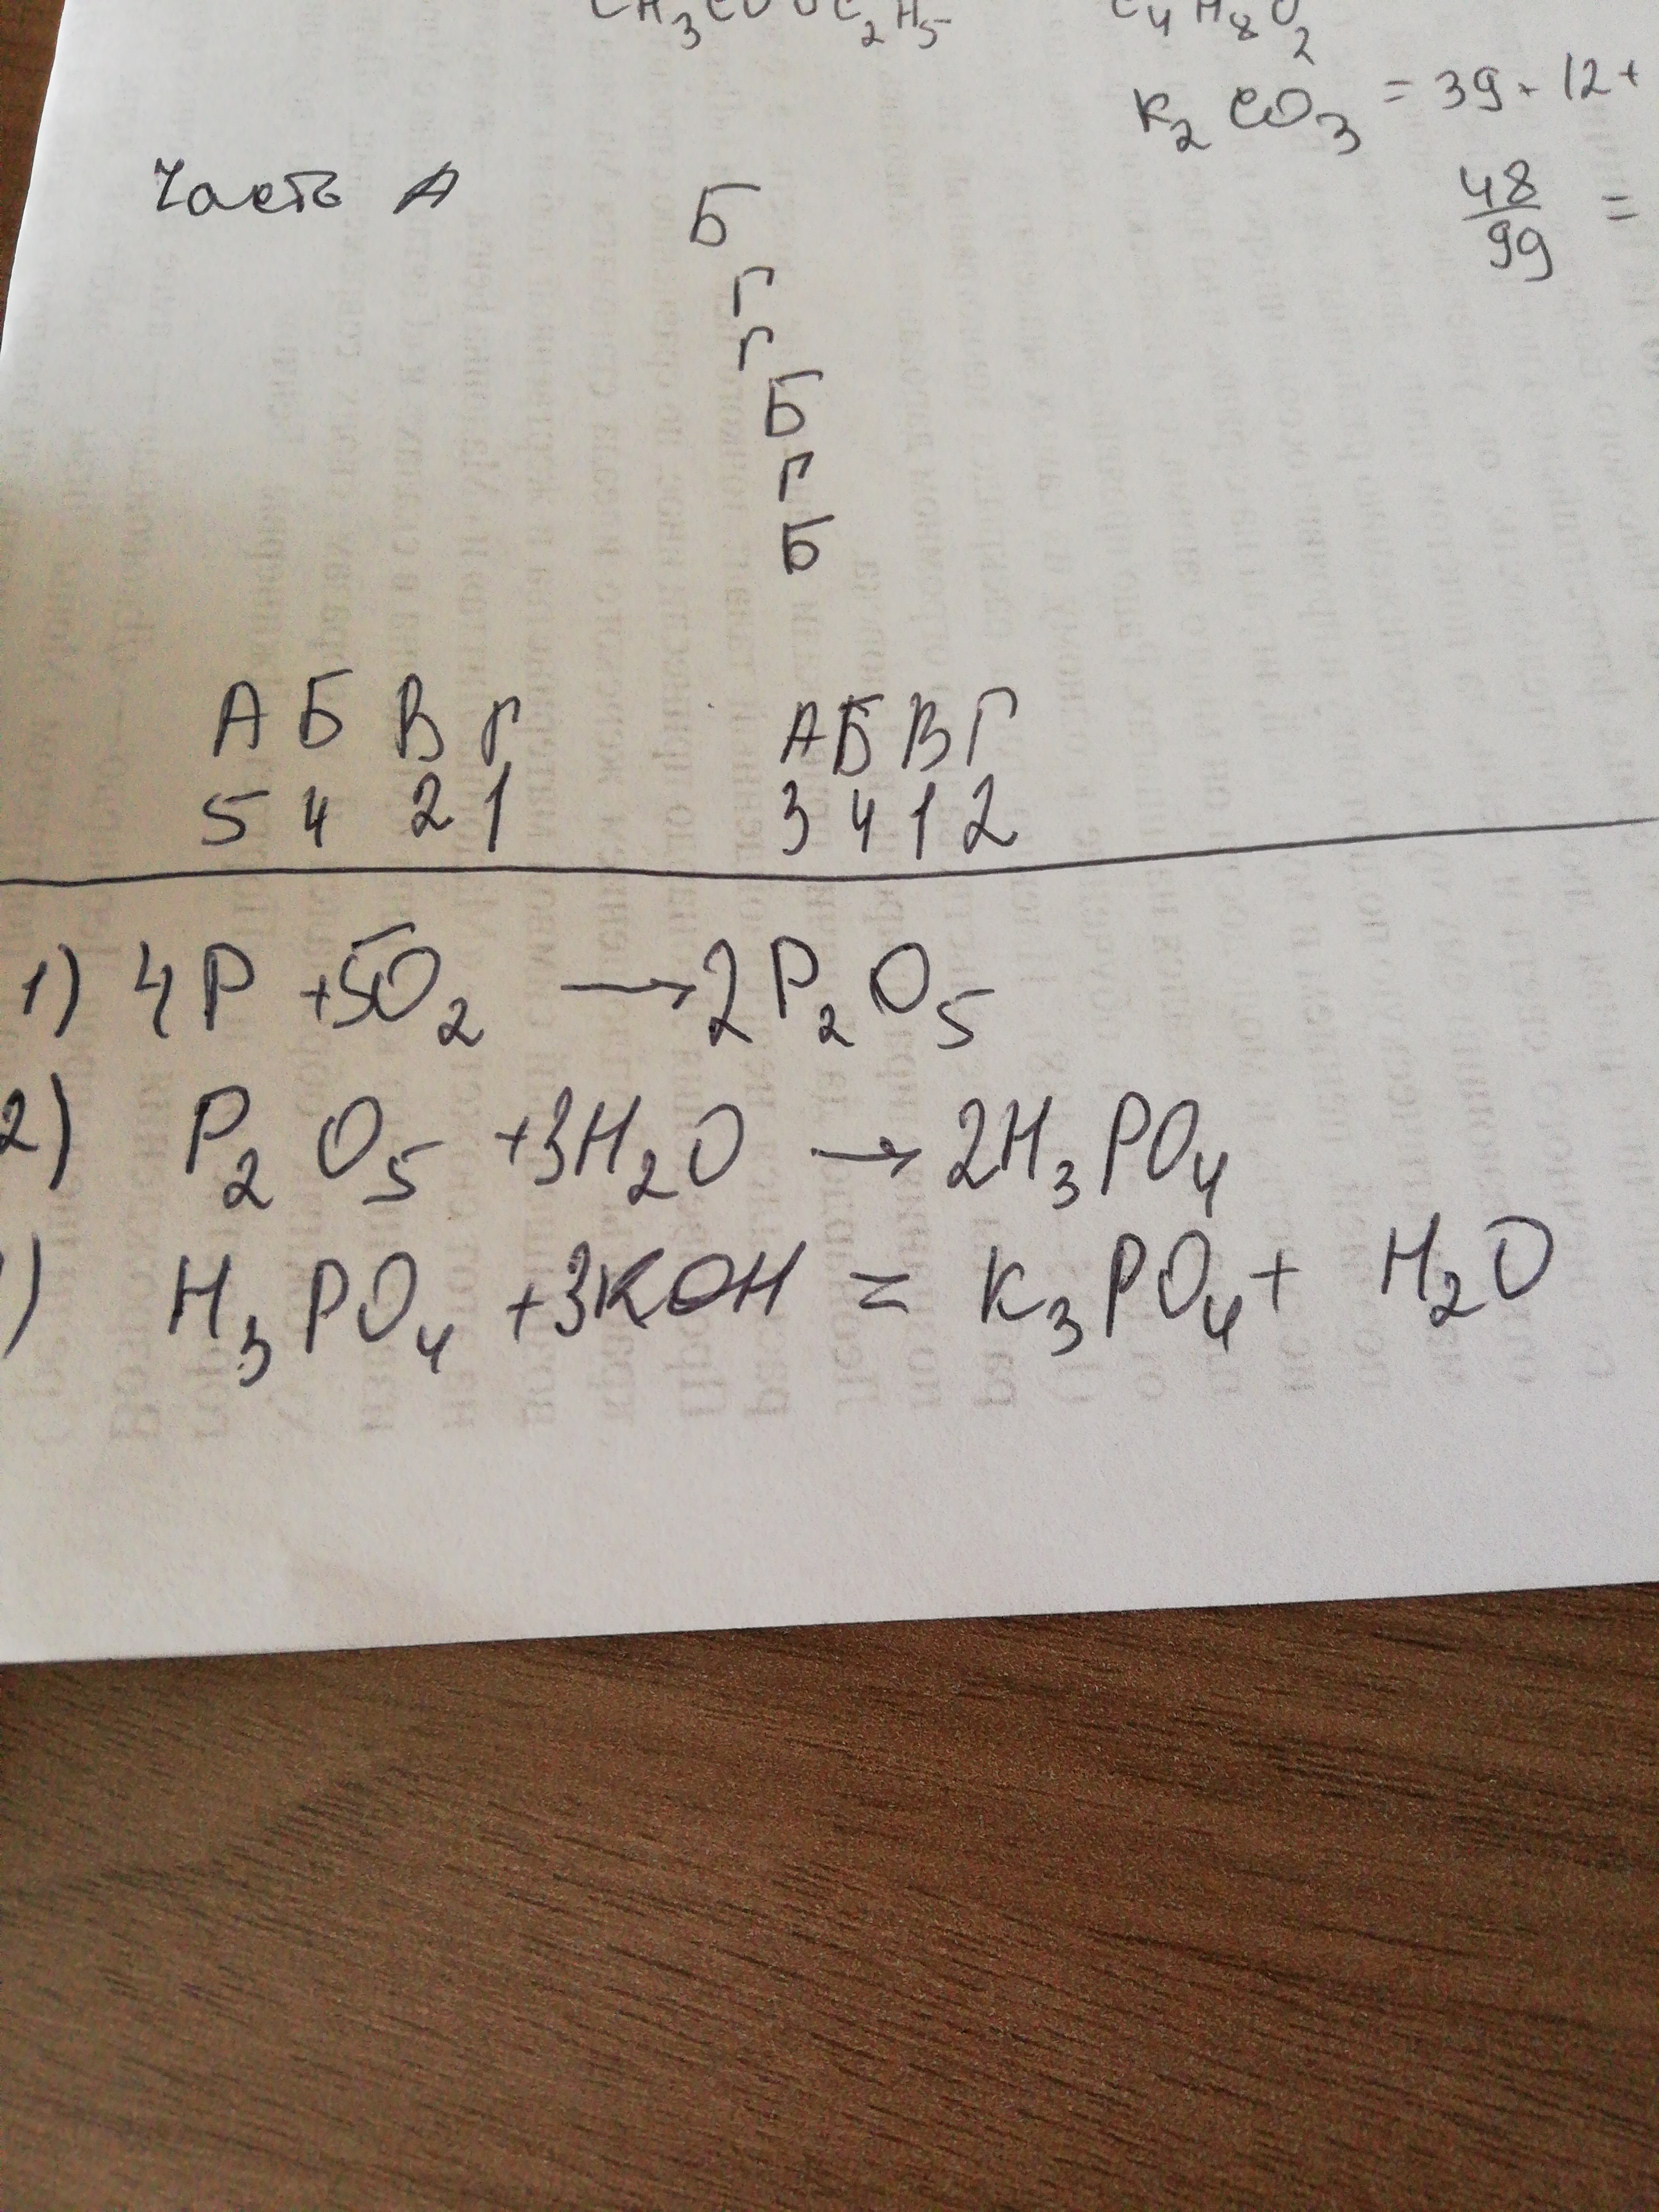 CH₃COOC₂H₅ C₄H₈O₂
K₂CO₃ = 39 + 12 +
48/99 =
Часть А
Б
Г
Г
Б
Г
Б
А Б В Г А Б В Г
5 4 2 1 3 4 1 2
1) 4P + 5O₂ → 2P₂O₅
2) P₂O₅ + 3H₂O → 2H₃PO₄
) H₃PO₄ + 3KOH = K₃PO₄ + H₂O